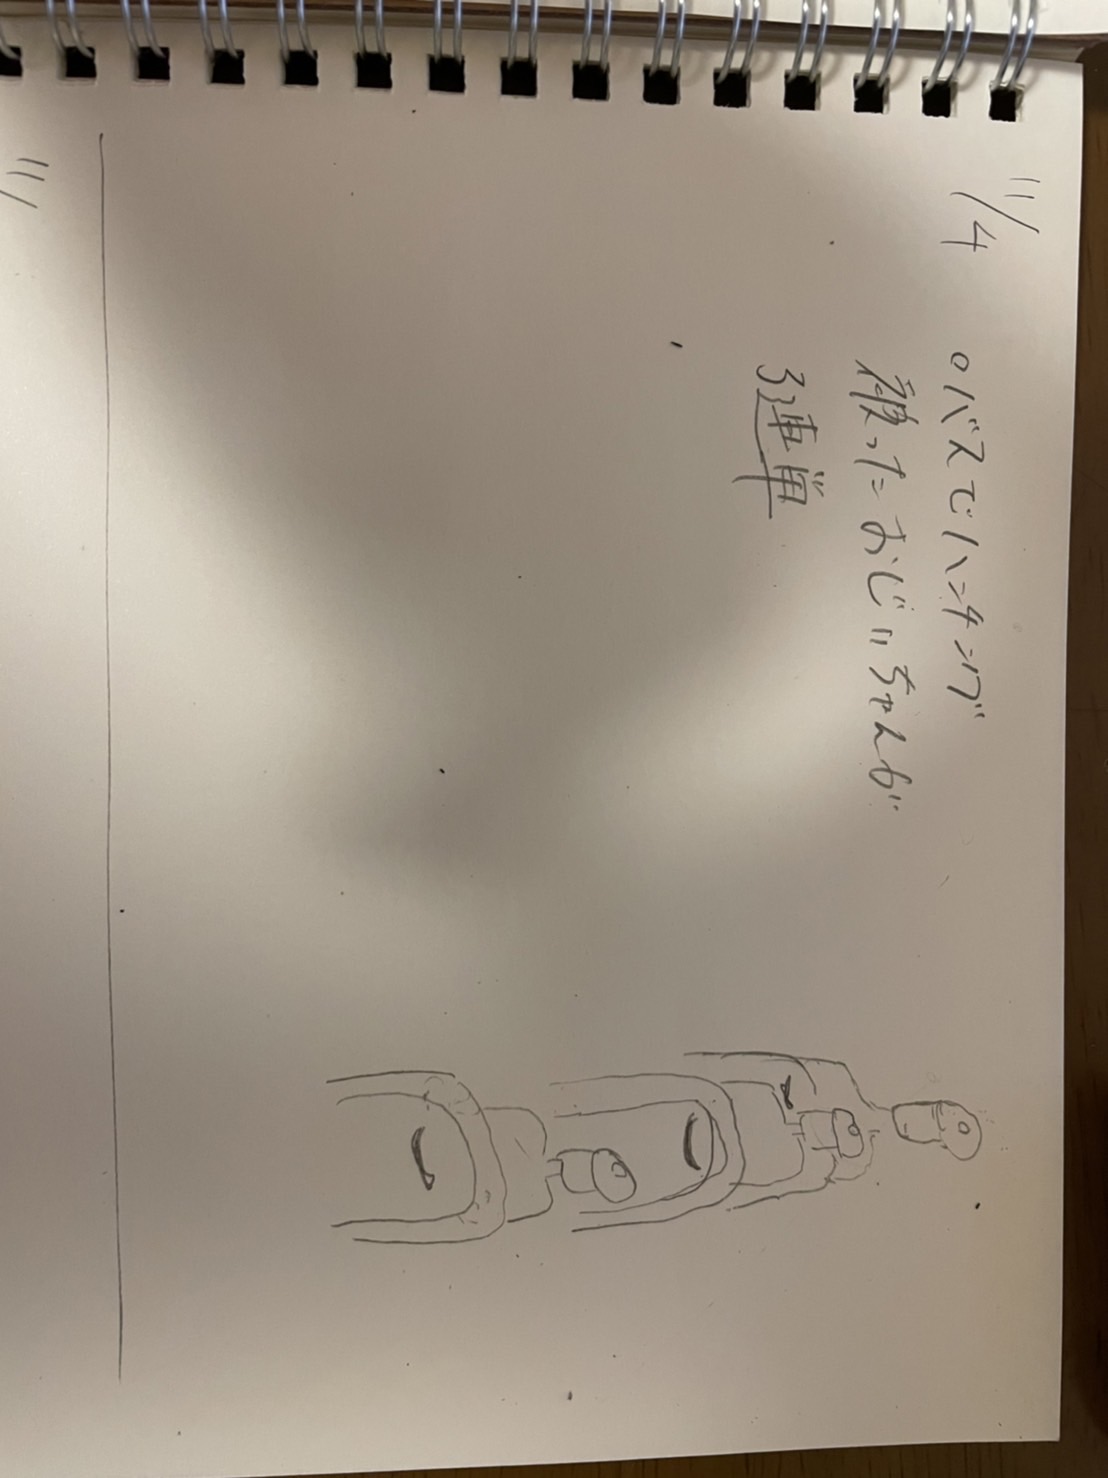 11/4
○バスでハンチング
被ったおじいちゃんが
3連単
11/